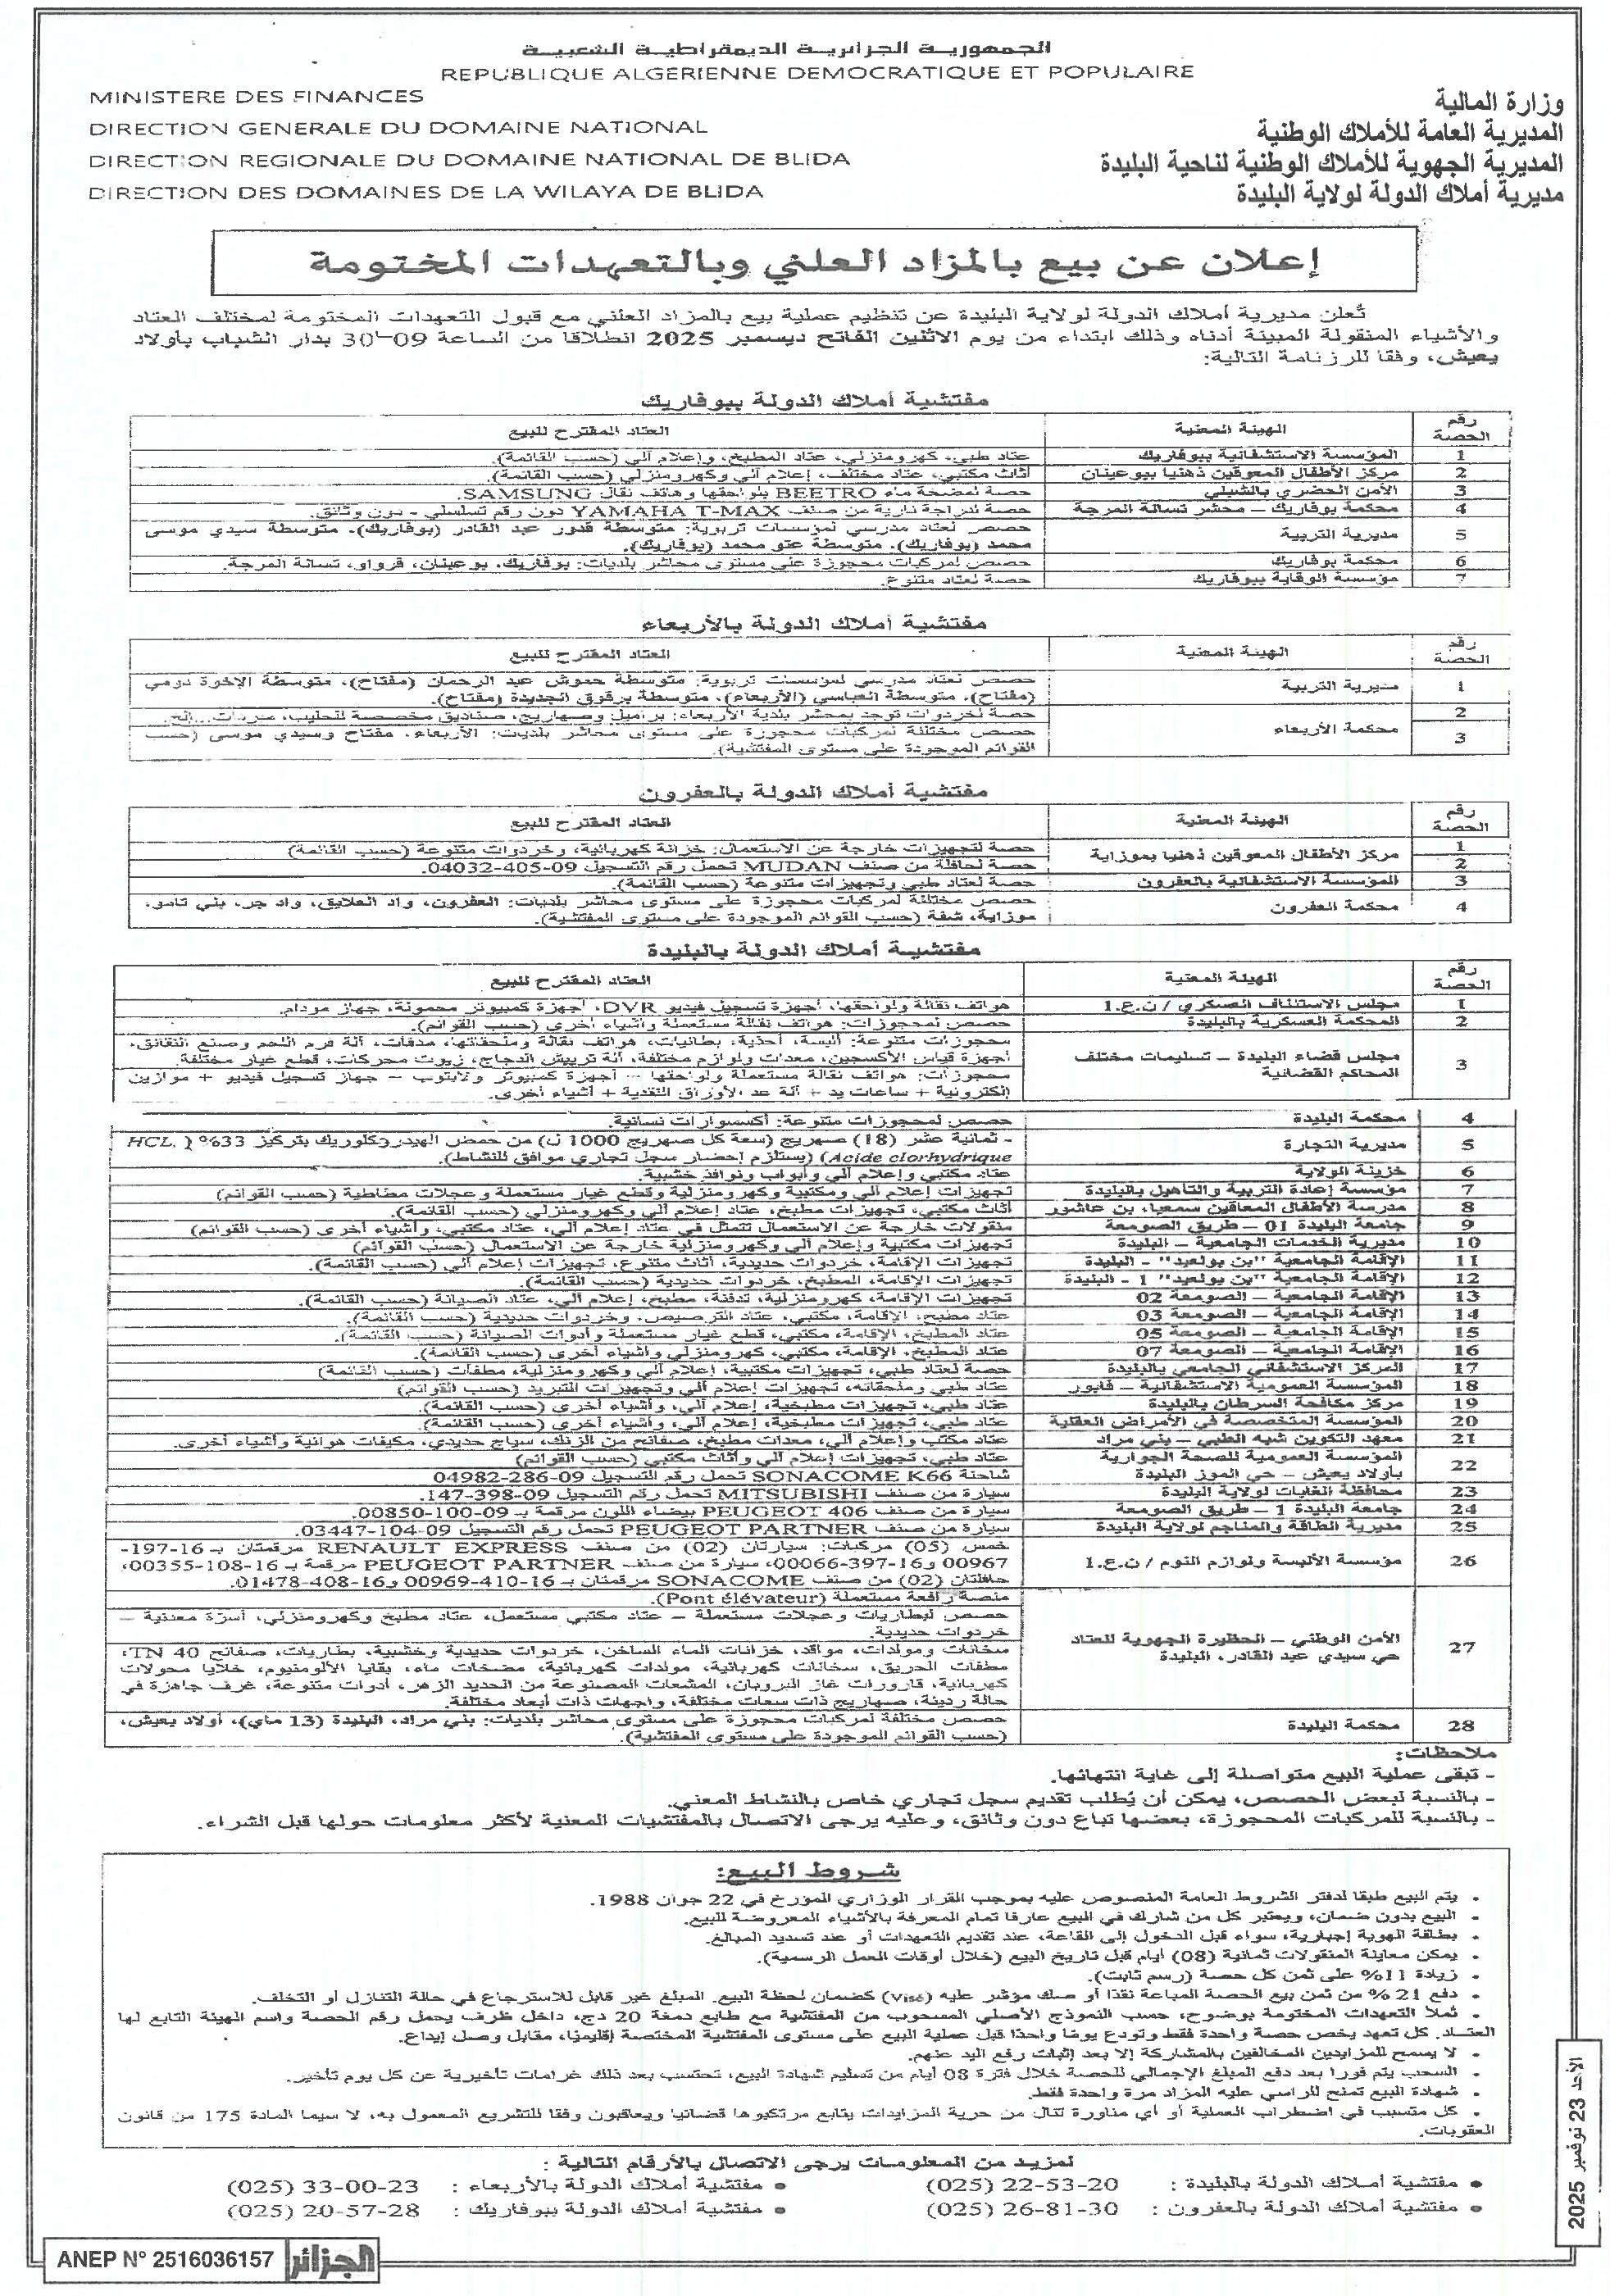 الجمهورية الجزائرية الديمقراطية الشعبية
REPUBLIQUE ALGERIENNE DEMOCRATIQUE ET POPULAIRE
MINISTERE DES FINANCES
DIRECTION GENERALE DU DOMAINE NATIONAL
DIRECTION REGIONALE DU DOMAINE NATIONAL DE BLIDA
DIRECTION DES DOMAINES DE LA WILAYA DE BLIDA
وزارة المالية
المديرية العامة للأملاك الوطنية
المديرية الجهوية للأملاك الوطنية لناحية البليدة
مديرية أملاك الدولة لولاية البليدة
إعلان عن بيع بالمزاد العلني وبالتعهدات المختومة
تُعلن مديرية أملاك الدولة لولاية البليدة عن تنظيم عملية بيع بالمزاد العلني مع قبول التعهدات المختومة لمختلف العتاد
والأشياء المنقولة المبينة أدناه وذلك ابتداء من يوم الاثنين الفاتح ديسمبر 2025 انطلاقا من الساعة 09-30 بدار الشباب بأولاد
يعيش، وفقا للرزنامة التالية:
مفتشية أملاك الدولة ببوفاريك
رقم الحصة | الهيئة المعنية | العتاد المقترح للبيع
1 | المؤسسة الاستشفائية ببوفاريك | عتاد طبي، كهرومنزلي، عتاد المطبخ، وإعلام آلي (حسب القائمة).
2 | مركز الأطفال المعوقين ذهنيا ببوعينان | أثاث مكتبي، عتاد مختلف، إعلام آلي وكهرومنزلي (حسب القائمة).
3 | الأمن الحضري بالشبلي | حصة لمضخة ماء BEETRO بلواحقها وهاتف نقال SAMSUNG.
4 | محكمة بوفاريك – محشر تسالة المرجة | حصة لدراجة نارية من صنف YAMAHA T-MAX دون رقم تسلسلي - دون وثائق.
5 | مديرية التربية | حصص لعتاد مدرسي لمؤسسات تربوية: متوسطة قدور عبد القادر (بوفاريك)، متوسطة سيدي موسى
محمد (بوفاريك)، متوسطة عتو محمد (بوفاريك).
6 | محكمة بوفاريك | حصص لمركبات محجوزة على مستوى محاشر بلديات: بوفاريك، بوعينان، قرواو، تسالة المرجة.
7 | مؤسسة الوقاية ببوفاريك | حصة لعتاد متنوع.
مفتشية أملاك الدولة بالأربعاء
رقم الحصة | الهيئة المعنية | العتاد المقترح للبيع
1 | مديرية التربية | حصص لعتاد مدرسي لمؤسسات تربوية: متوسطة حموش عبد الرحمان (مفتاح)، متوسطة الإخوة دومي
(مفتاح)، متوسطة العباسي (الأربعاء)، متوسطة برقوق الجديدة (مفتاح).
2 | محكمة الأربعاء | حصة لخردوات توجد بمحشر بلدية الأربعاء: براميل وصهاريج، صناديق مخصصة للحليب، مبردات...إلخ.
3 | حصص مختلفة لمركبات محجوزة على مستوى محاشر بلديات: الأربعاء، مفتاح وسيدي موسى (حسب
القوائم الموجودة على مستوى المفتشية).
مفتشية أملاك الدولة بالعفرون
رقم الحصة | الهيئة المعنية | العتاد المقترح للبيع
1 | مركز الأطفال المعوقين ذهنيا بموزاية | حصة لتجهيزات خارجة عن الاستعمال: خزانة كهربائية، وخردوات متنوعة (حسب القائمة)
2 | حصة لحافلة من صنف MUDAN تحمل رقم التسجيل 09-405-04032.
3 | المؤسسة الاستشفائية بالعفرون | حصة لعتاد طبي وتجهيزات متنوعة (حسب القائمة).
4 | محكمة العفرون | حصص مختلفة لمركبات محجوزة على مستوى محاشر بلديات: العفرون، واد العلايق، واد جر، بني تامو،
موزاية، شفة (حسب القوائم الموجودة على مستوى المفتشية).
مفتشية أملاك الدولة بالبليدة
رقم الحصة | الهيئة المعنية | العتاد المقترح للبيع
1 | مجلس الاستئناف العسكري / ن.ع.1 | هواتف نقالة ولواحقها، أجهزة تسجيل فيديو DVR، أجهزة كمبيوتر محمولة، جهاز مودام.
2 | المحكمة العسكرية بالبليدة | حصص لمحجوزات: هواتف نقالة مستعملة وأشياء أخرى (حسب القوائم).
3 | مجلس قضاء البليدة – تسليمات مختلف المحاكم القضائية | محجوزات متنوعة: ألبسة، أحذية، بطانيات، هواتف نقالة وملحقاتها، مدفآت، آلة فرم اللحم وصنع النقانق،
أجهزة قياس الأكسجين، معدات ولوازم مختلفة، آلة ترييش الدجاج، زيوت محركات، قطع غيار مختلفة.
محجوزات: هواتف نقالة مستعملة ولواحقها – أجهزة كمبيوتر ولابتوب – جهاز تسجيل فيديو + موازين
إلكترونية + ساعات يد + آلة عد الأوراق النقدية + أشياء أخرى.
4 | محكمة البليدة | حصص لمحجوزات متنوعة: أكسسوارات نسائية.
5 | مديرية التجارة | - ثمانية عشر (18) صهريج (سعة كل صهريج 1000 ل) من حمض الهيدروكلوريك بتركيز 33% (HCL.
Acide clorhydrique) (يستلزم إحضار سجل تجاري موافق للنشاط).
6 | خزينة الولاية | عتاد مكتبي وإعلام آلي وأبواب ونوافذ خشبية.
7 | مؤسسة إعادة التربية والتأهيل بالبليدة | تجهيزات إعلام آلي ومكتبية وكهرومنزلية وقطع غيار مستعملة وعجلات مطاطية (حسب القوائم)
8 | مدرسة الأطفال المعاقين سمعيا، بن عاشور | أثاث مكتبي، تجهيزات مطبخ، عتاد إعلام آلي وكهرومنزلي (حسب القائمة).
9 | جامعة البليدة 01 – طريق الصومعة | منقولات خارجة عن الاستعمال تتمثل في عتاد إعلام آلي، عتاد مكتبي، وأشياء أخرى (حسب القوائم)
10 | مديرية الخدمات الجامعية – البليدة | تجهيزات مكتبية وإعلام آلي وكهرومنزلية خارجة عن الاستعمال (حسب القوائم)
11 | الإقامة الجامعية "بن بولعيد" - البليدة | تجهيزات الإقامة، خردوات حديدية، أثاث متنوع، تجهيزات إعلام آلي (حسب القائمة).
12 | الإقامة الجامعية "بن بولعيد" 1 - البليدة | تجهيزات الإقامة، المطبخ، خردوات حديدية (حسب القائمة).
13 | الإقامة الجامعية – الصومعة 02 | تجهيزات الإقامة، كهرومنزلية، تدفئة، مطبخ، إعلام آلي، عتاد الصيانة (حسب القائمة).
14 | الإقامة الجامعية – الصومعة 03 | عتاد مطبخ، الإقامة، مكتبي، عتاد الترصيص، وخردوات حديدية (حسب القائمة).
15 | الإقامة الجامعية – الصومعة 05 | عتاد المطبخ، الإقامة، مكتبي، قطع غيار مستعملة وأدوات الصيانة (حسب القائمة).
16 | الإقامة الجامعية – الصومعة 07 | عتاد المطبخ، الإقامة، مكتبي، كهرومنزلي وأشياء أخرى (حسب القائمة).
17 | المركز الاستشفائي الجامعي بالبليدة | حصة لعتاد طبي، تجهيزات مكتبية، إعلام آلي وكهرومنزلية، مطفآت (حسب القائمة)
18 | المؤسسة العمومية الاستشفائية – فابور | عتاد طبي وملحقاته، تجهيزات إعلام آلي وتجهيزات التبريد (حسب القوائم)
19 | مركز مكافحة السرطان بالبليدة | عتاد طبي، تجهيزات مطبخية، إعلام آلي، وأشياء أخرى (حسب القائمة).
20 | المؤسسة المتخصصة في الأمراض العقلية | عتاد طبي، تجهيزات مطبخية، إعلام آلي، وأشياء أخرى (حسب القائمة).
21 | معهد التكوين شبه الطبي – بني مراد | عتاد مكتب وإعلام آلي، معدات مطبخ، صفائح من الزنك، سياج حديدي، مكيفات هوائية وأشياء أخرى.
22 | المؤسسة العمومية للصحة الجوارية بأولاد يعيش – حي الموز البليدة | عتاد طبي، تجهيزات إعلام آلي وأثاث مكتبي (حسب القوائم)
شاحنة SONACOME K66 تحمل رقم التسجيل 09-286-04982
23 | محافظة الغابات لولاية البليدة | سيارة من صنف MITSUBISHI تحمل رقم التسجيل 09-398-147.
24 | جامعة البليدة 1 – طريق الصومعة | سيارة من صنف PEUGEOT 406 بيضاء اللون مرقمة بـ 09-100-00850.
25 | مديرية الطاقة والمناجم لولاية البليدة | سيارة من صنف PEUGEOT PARTNER تحمل رقم التسجيل 09-104-03447.
26 | مؤسسة الألبسة ولوازم النوم / ن.ع.1 | خمس (05) مركبات: سيارتان (02) من صنف RENAULT EXPRESS مرقمتان بـ 16-197-
00967 و16-397-00066، سيارة من صنف PEUGEOT PARTNER مرقمة بـ 16-108-00355،
حافلتان (02) من صنف SONACOME مرقمتان بـ 16-410-00969 و16-408-01478.
27 | الأمن الوطني – الحظيرة الجهوية للعتاد حي سيدي عبد القادر، البليدة | منصة رافعة مستعملة (Pont élévateur).
حصص لبطاريات وعجلات مستعملة – عتاد مكتبي مستعمل، عتاد مطبخ وكهرومنزلي، أسرّة معدنية –
خردوات حديدية.
سخانات ومولدات، مواقد، خزانات الماء الساخن، خردوات حديدية وخشبية، بطاريات، صفائح TN 40،
مطفآت الحريق، سخانات كهربائية، مولدات كهربائية، مضخات ماء، بقايا الألومنيوم، خلايا محولات
كهربائية، قارورات غاز البروبان، المشعات المصنوعة من الحديد الزهر، أدوات متنوعة، غرف جاهزة في
حالة رديئة، صهاريج ذات سعات مختلفة، واجهات ذات أبعاد مختلفة.
28 | محكمة البليدة | حصص مختلفة لمركبات محجوزة على مستوى محاشر بلديات: بني مراد، البليدة (13 ماي)، أولاد يعيش،
(حسب القوائم الموجودة على مستوى المفتشية).
ملاحظات:
- تبقى عملية البيع متواصلة إلى غاية انتهائها.
- بالنسبة لبعض الحصص، يمكن أن يُطلب تقديم سجل تجاري خاص بالنشاط المعني.
- بالنسبة للمركبات المحجوزة، بعضها تباع دون وثائق، وعليه يرجى الاتصال بالمفتشيات المعنية لأكثر معلومات حولها قبل الشراء.
شروط البيع:
• يتم البيع طبقا لدفتر الشروط العامة المنصوص عليه بموجب القرار الوزاري المؤرخ في 22 جوان 1988.
• البيع بدون ضمان، ويعتبر كل من شارك في البيع عارفا تمام المعرفة بالأشياء المعروضة للبيع.
• بطاقة الهوية إجبارية، سواء قبل الدخول إلى القاعة، عند تقديم التعهدات أو عند تسديد المبالغ.
• يمكن معاينة المنقولات ثمانية (08) أيام قبل تاريخ البيع (خلال أوقات العمل الرسمية).
• زيادة 11% على ثمن كل حصة (رسم ثابت).
• دفع 21 % من ثمن بيع الحصة المباعة نقدًا أو صك مؤشر عليه (Visé) كضمان لحظة البيع. المبلغ غير قابل للاسترجاع في حالة التنازل أو التخلف.
• تملأ التعهدات المختومة بوضوح، حسب النموذج الأصلي المسحوب من المفتشية مع طابع دمغة 20 دج، داخل ظرف يحمل رقم الحصة واسم الهيئة التابع لها
العتاد. كل تعهد يخص حصة واحدة فقط وتودع يومًا واحدًا قبل عملية البيع على مستوى المفتشية المختصة إقليميًا، مقابل وصل إيداع.
• لا يسمح للمزايدين المخالفين بالمشاركة إلا بعد إثبات رفع اليد عنهم.
• السحب يتم فورا بعد دفع المبلغ الإجمالي للحصة خلال فترة 08 أيام من تسليم شهادة البيع، تحتسب بعد ذلك غرامات تأخيرية عن كل يوم تأخير.
• شهادة البيع تمنح للراسي عليه المزاد مرة واحدة فقط.
• كل متسبب في اضطراب العملية أو أي مناورة تنال من حرية المزايدات يتابع مرتكبوها قضائيا ويعاقبون وفقا للتشريع المعمول به، لا سيما المادة 175 من قانون
العقوبات.
لمزيد من المعلومات يرجى الاتصال بالأرقام التالية :
• مفتشية أملاك الدولة بالبليدة : 20-53-22 (025)
• مفتشية أملاك الدولة بالأربعاء : 23-00-33 (025)
• مفتشية أملاك الدولة بالعفرون : 30-81-26 (025)
• مفتشية أملاك الدولة ببوفاريك : 28-57-20 (025)
الأحد 23 نوفمبر 2025
ANEP N° 2516036157
الجزائر